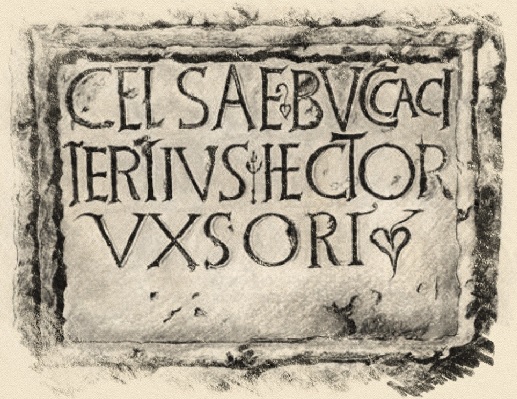 CELSAE❦BVCCACI
TERTIVS HECTOR
VXSORI❦